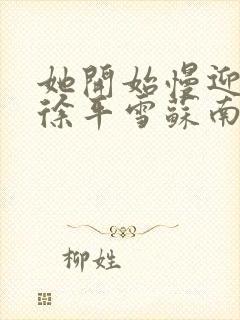 她開始慢迎
徐平雪蘇南
柳姓